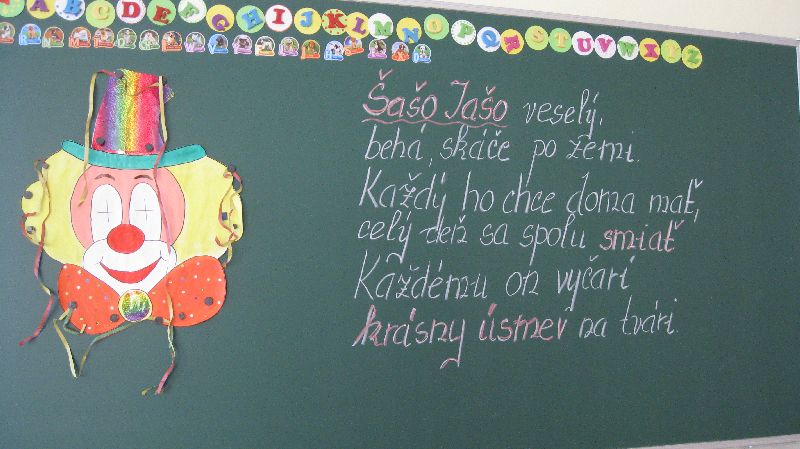 A B C D E F G H I J K L M N O P Q R S T U V W X Y Z
Šašo Jašo veselý,
behá, skáče po zemi.
Každý ho chce doma mať,
celý deň sa spolu smiať
Každému on vyčarí
krásny úsmev na tvári.